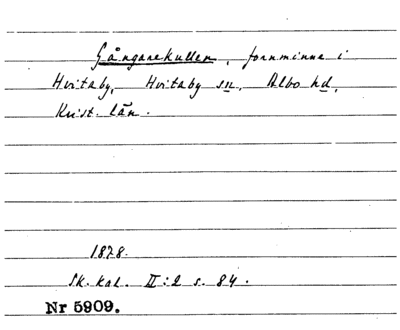 Gånganekullen, fornminne i
Hvitaby, Hvitaby sn, Albo hd,
Krist. län.
1878.
Sk. kal. II:2 s. 84.
Nr 5909.